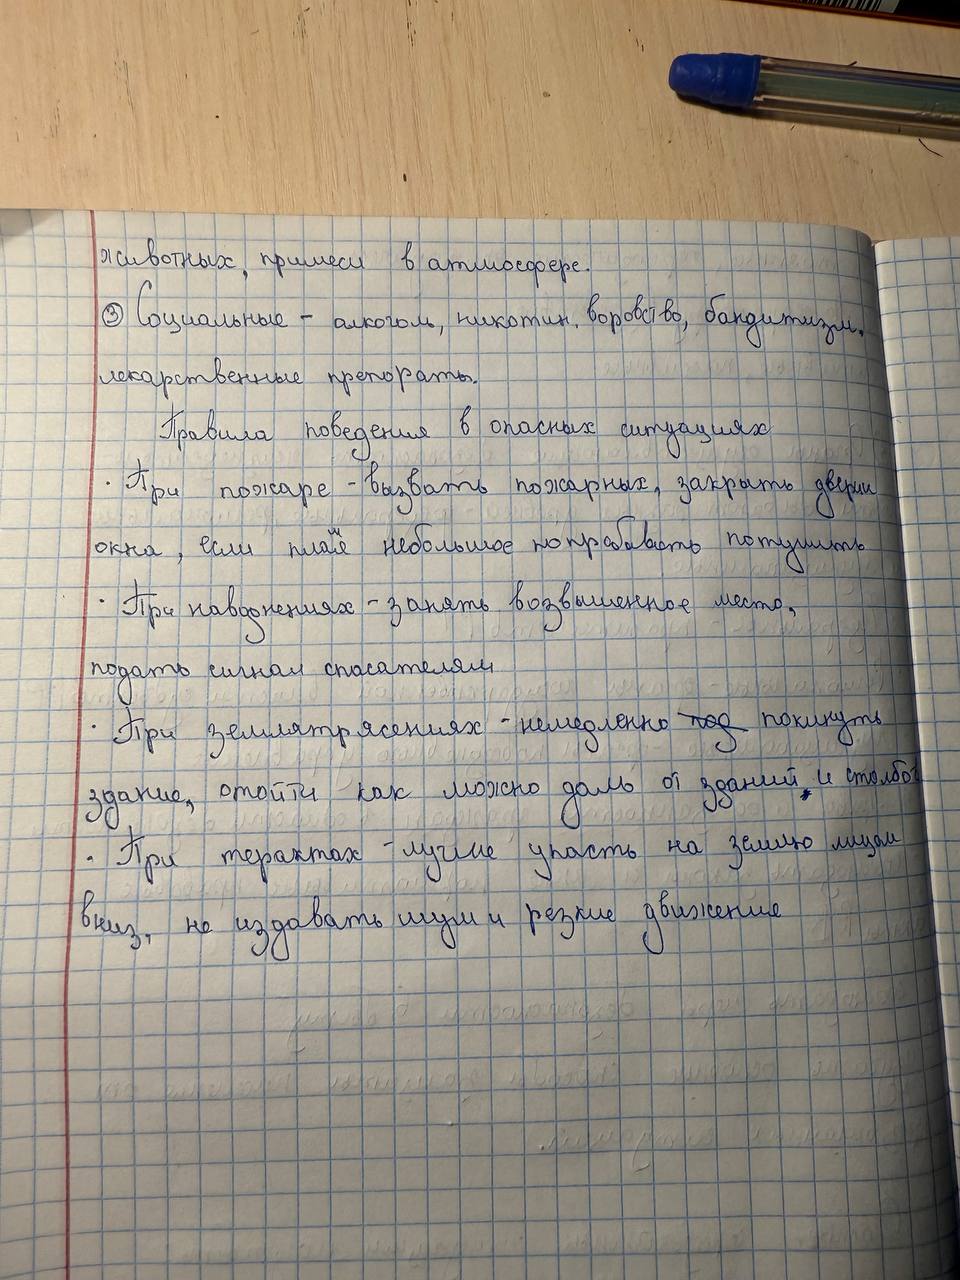 животных, примеси в атмосфере.
③ Социальные - алкоголь, никотин, воровство, бандитизм,
лекарственные препораты.
Правила поведения в опасных ситуациях
· При пожаре - вызвать пожарных, закрыть двери и
окна, если пламя небольшое попробывать потушить
· При наводнениях - занять возвышенное место,
подать сигнал спасателям
· При землятрясениях - немедленно под покинуть
здание, отойти как можно даль от зданий, и столбов
· При терактах - лучше упасть на землю лицом
вниз, не издавать шум и резкие движение